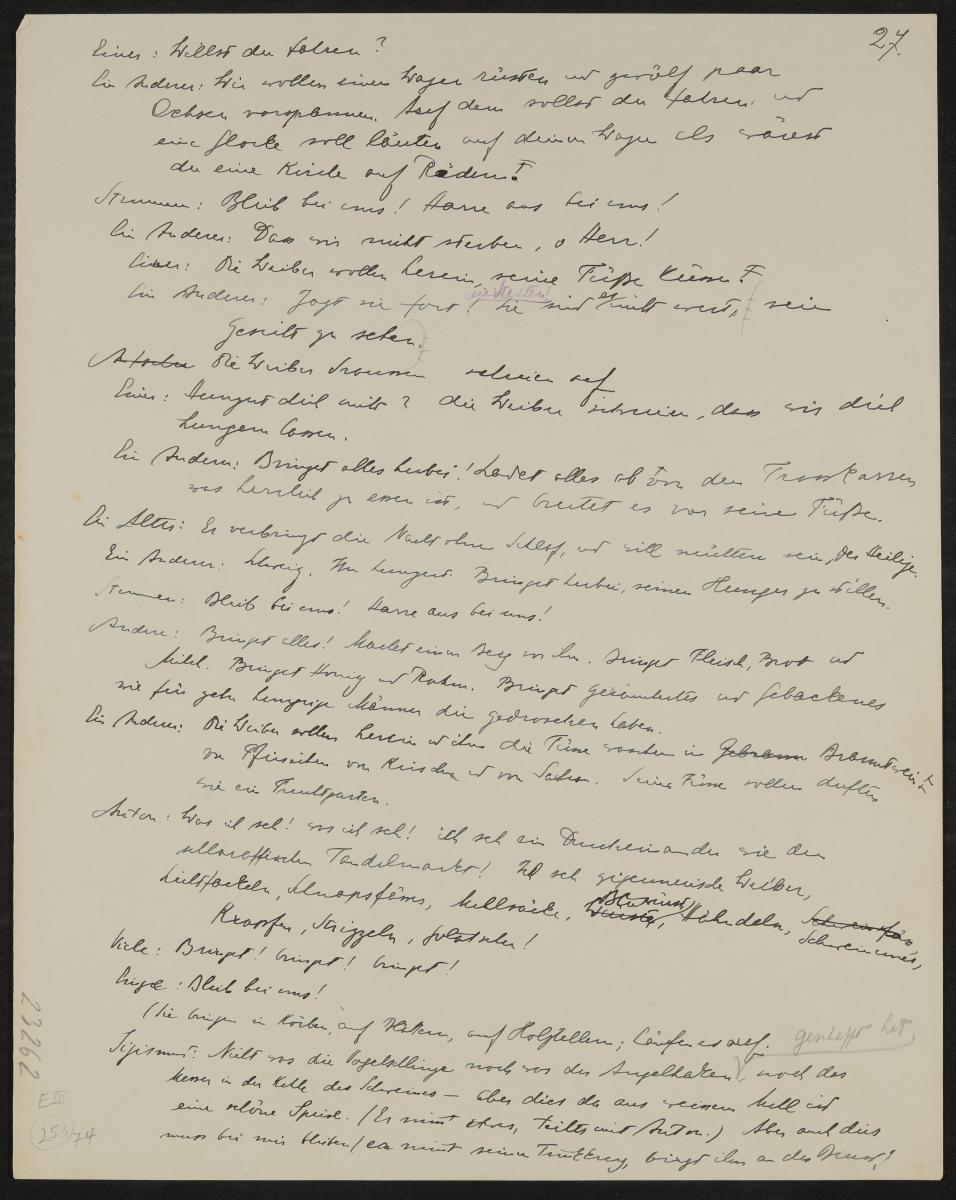 27.
Einer: Willst du fahren?
Ein Anderer: Wir wollen einen Wagen rüsten und zwölf paar
Ochsen vorspannen. Auf dem sollst du fahren. und
eine Glocke soll läuten auf deinem Wagen als wärest
du eine Kirche auf Rädern!
Stimmen: Bleib bei uns! Harre aus bei uns!
Ein Anderer: Dass wir nicht sterben, o Herr!
Einer: Die Weiber wollen herein, seine Füße küssen!
Ein Anderer: Jagt sie fort! Sie sind es nicht wert, sein
Gesicht zu sehen.
Die Weiber draussen schreien auf
Einer: Hungert dich nicht? Die Weiber schreien, dass wir dich
hungern lassen.
Ein Anderer: Bringet alles herbei! Ladet alles ab von den Trosskarren
was herrlich zu essen ist, und breitet es vor seine Füße.
Ein Alter: Er verbringt die Nacht ohne Schlaf, und will nüchtern sein, der Heilige.
Ein Anderer: Ihn hungert. Bringet herbei, seinen Hunger zu stillen.
Stimmen: Bleib bei uns! Harre aus bei uns!
Andere: Bringet alles! Machet einen Berg vor ihm. Bringet Fleisch, Brot und
Milch. Bringet Honig und Rahm. Bringet Geräuchertes und Gebackenes
wie für zehn hungrige Männer die gedroschen haben.
Ein Anderer: Die Weiber sollen herein und ihm die Füsse waschen in Branntwein
von Pfirsichen von Kirschen und von . Seine Füsse sollen duften
wie ein Fruchtgarten.
Anton: Was ich seh! was ich seh! ich seh ein Durcheinander wie den
schlaraffischen Tandelmarkt! Ich seh zigeunerische Weiber,
Lichtfackeln, Schnapsfässer, Mehlsäcke, Blutwürst, Hühndeln, Schweinernes,
Krapfen, Strizzeln, Golatschen!
Viele: Bringet! bringet! bringet!
Einige: Bleib bei uns!
(Sie bringen in Körben, auf Blättern, auf Holztellern; häufen es auf.
Sigismund: Nicht was die Vogelschlinge noch was der Angelhaken gerafft hat, noch das
Messer in der Kehle des Schweines – aber dies da aus weissem Mehl ist
eine schöne Speise. (Er nimmt etwas, teilts mit Anton.) Aber auch dies
muss bei mir bleiben (er nimmt seinen Trinkkrug, birgt ihn an der Brust)
23262
E III
253/74